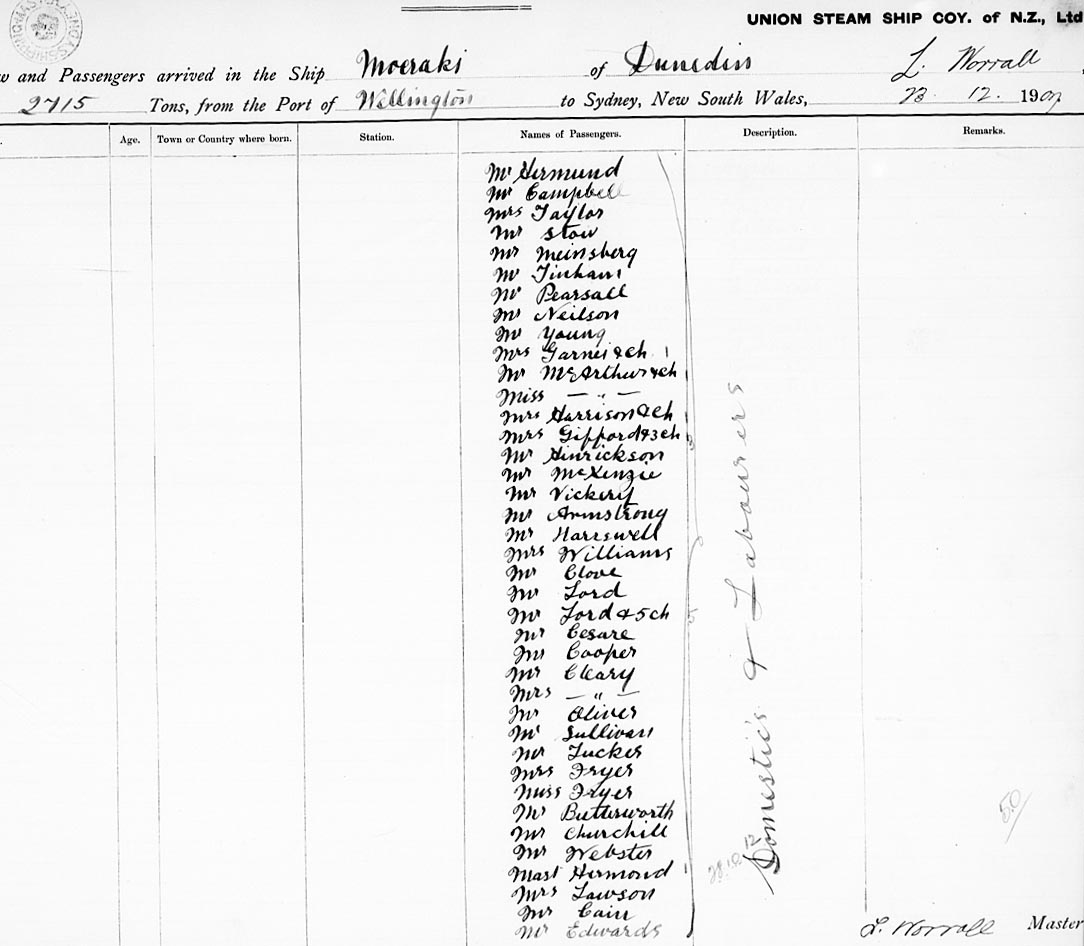 UNION STEAM SHIP COY. of N.Z., Ltd
w and Passengers arrived in the Ship Moeraki of Dunedin L. Worrall
2715 Tons, from the Port of Wellington to Sydney, New South Wales, 23. 12. 1907
Age. Town or Country where born. Station. Names of Passengers. Description. Remarks.
Mr Hermund
Mr Campbell
Mrs Taylor
Mr Stow
Mr Meinsberg
Mr Tinham
Mr Pearsall
Mr Neilson
Mr Young
Mrs Garner & ch 1
Mr McArthur & ch 1
Miss — " —
Mrs Harrison & Ch 1
Mrs Gifford & 3 ch 3
Mr Hinrickson
Mr McKenzie
Mr Vickery
Mr Armstrong
Mr Hareswell
Mrs Williams
Mr Clove
Mr Lord
Mr Lord & 5 ch 5
Mr Cesare
Mr Cooper
Mr Cleary
Mrs — " —
Mr Oliver
Mr Sullivan
Mr Tucker
Mrs Fryer
Miss Fryer
Mr Butterworth
Mr Churchill
Mr Webster
Mast Hermond 1
Mrs Lawson
Mr Cain
Mr Edwards
Domestics & Labourers
50/
L. Worrall Master